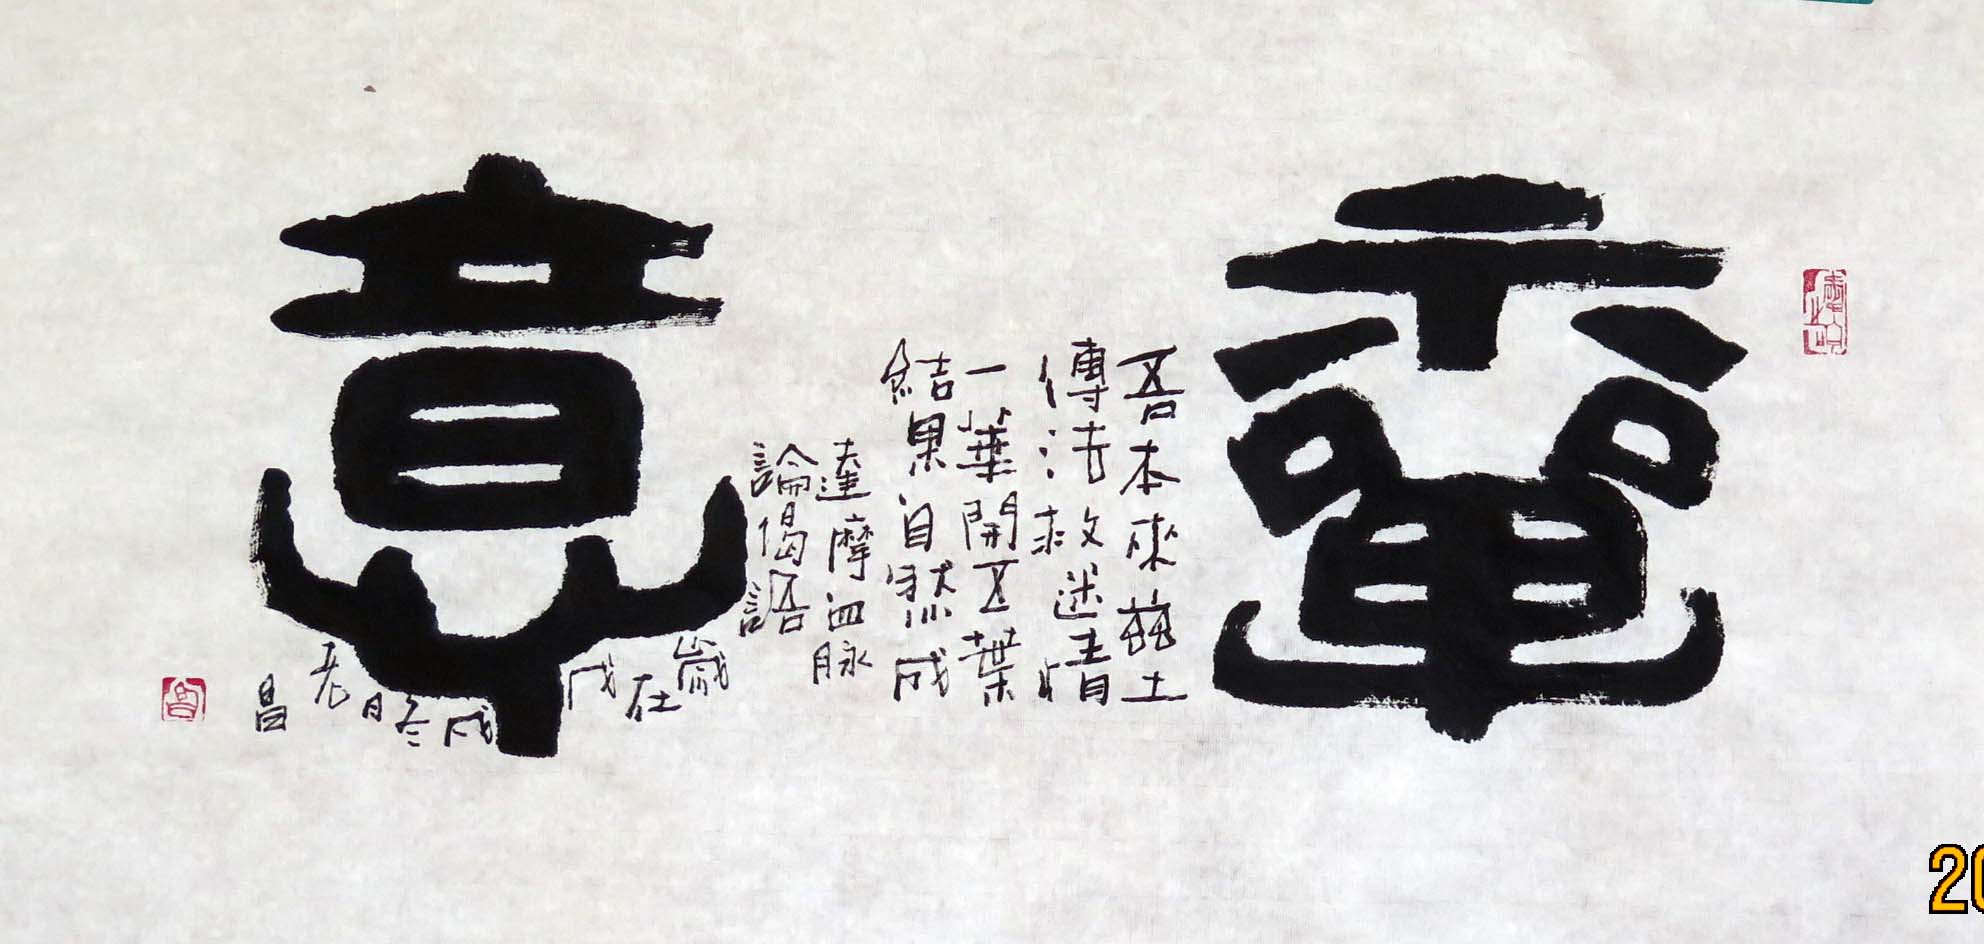 禪意
吾本來茲土
傳法救迷情
一華開五葉
結果自然成
達摩血脉
論偈語
歲在戊戌冬月老昌
昌
20